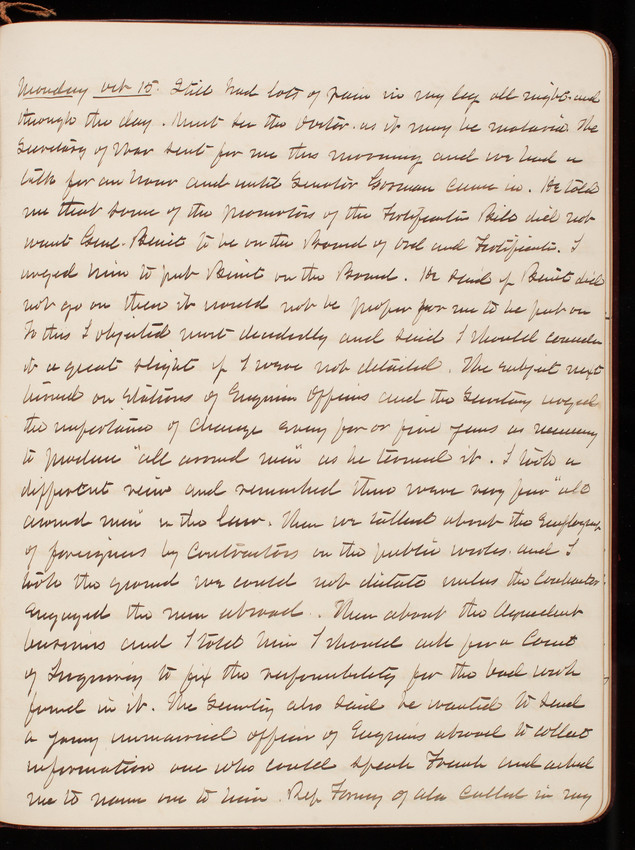 Monday Oct 15. Still had lots of pain in my leg all night and
through the day. Must see the doctor as it may be malaria. The
Secretary of War sent for me this morning and we had a
talk for an hour and until Senator Gorman came in. He told
me that some of the promoters of the Fortification Bill did not
want Genl. Benét to be on the Board of Ord and Fortificatn. I
urged him to put Benét on the Board. He said if Benét did
not go on then it would not be proper for me to be put on
To this I objected most decidedly and said I should consider
it a great slight if I were not detailed. The subject next
turned on stations of Engineer Officers and the Secretary urged
the importance of change every four or five years as necessary
to produce "all around men" as he termed it. I took a
different view and remarked there were very few "all
around men" in the law. Then we talked about the employment
of foreigners by contractors on the public works and I
took the ground we could not dictate unless the contractor
engaged the men abroad. Then about the Aqueduct
business and I told him I should ask for a Court
of Inquiry to fix the responsibility for the bad work
found in it. The Secretary also said he wanted to send
a young unmarried officer of Engineers abroad to collect
information one who could speak French and asked
me to name one to him. Rep Forney of Ala called in my